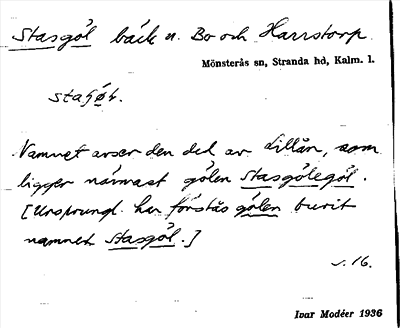 Stasgöl bäck n. Bo och Harrstorp.
Mönsterås sn, Stranda hd, Kalm. l.
Namnet avser den del av Lillån, som
ligger närmast gölen Stasgölegöl.
[Ursprungl. har förstås gölen burit
namnet Stasgöl.]
s. 16.
Ivar Modéer 1936